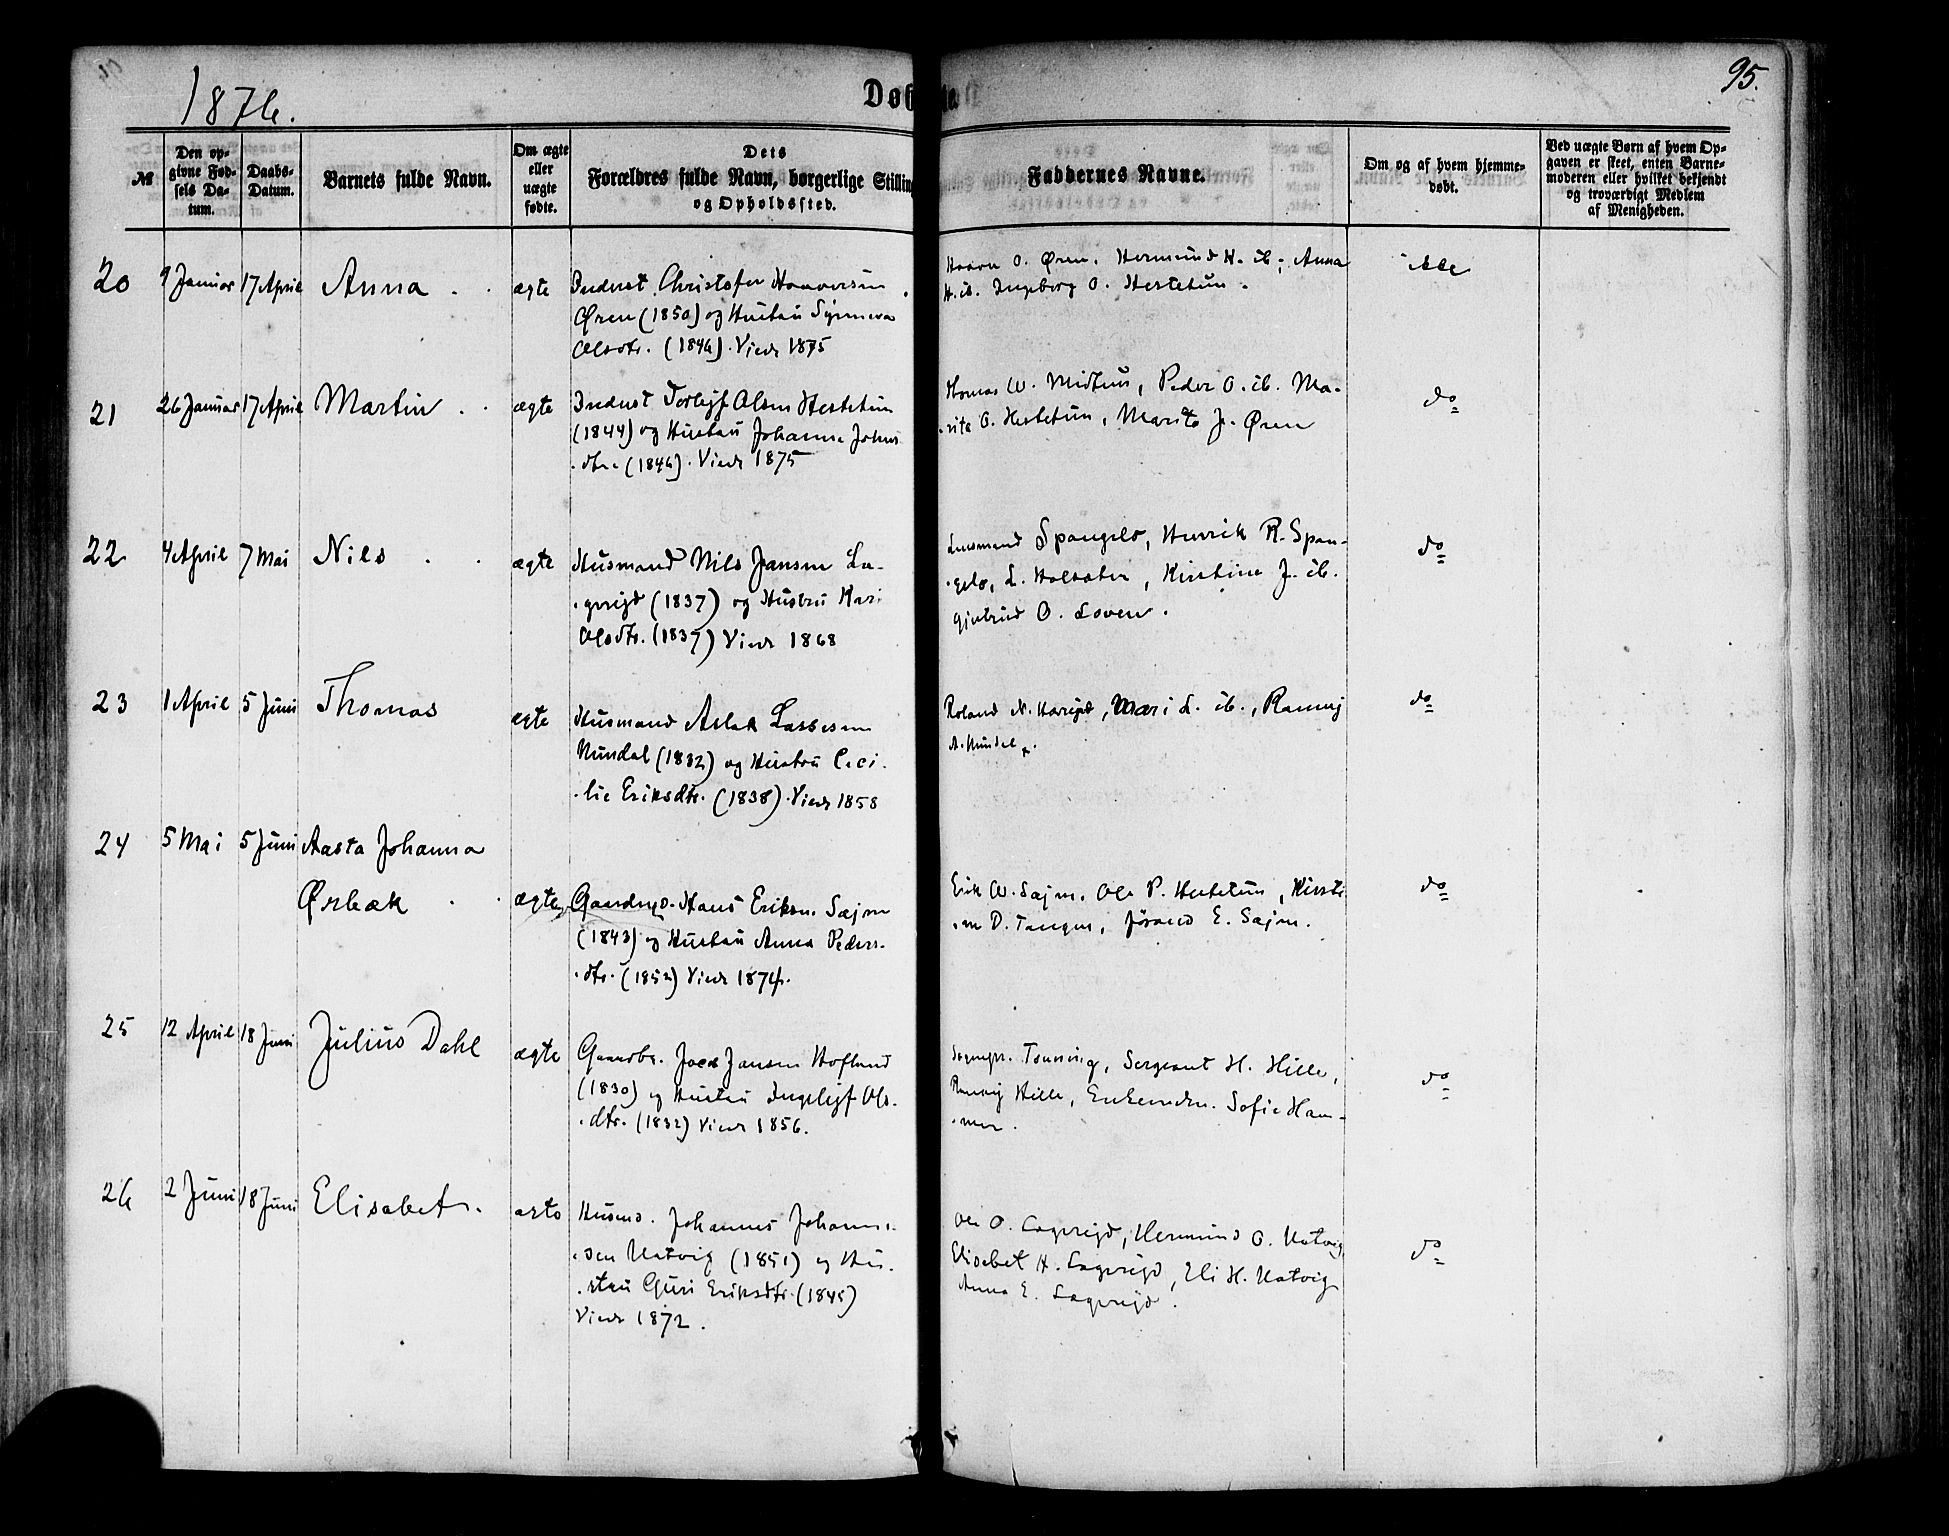 1876.
Døbte
95.
№
Den op-
givne Fød-
sels Da-
tum.
Daabs-
Datum.
Barnets fulde Navn.
Om ægte
eller
uægte
fødte.
Dets
Forældres fulde Navn, borgerlige Stilling
og Opholdssted.
Faddernes Navne.
Om og af hvem hjemme-
døbt.
Ved uægte Børn af hvem Op-
gaven er skeet, enten Barne-
moderen eller hvilket bekjendt
og troværdigt Medlem
af Menigheden.
20 9 Januar 17 April Anna ægte
Inderst Christofer
Øren (1850) og Hustru Synneva
Olsdtr. (1846). Viede 1875
O. Øren. Hermund H. ib; Anna
H. ib. Ingeborg O. Hestetun.
ikke
21 26 Januar 17 April Martin ægte
Inderst Torleif Olsen Hestetun
(1844) og Hustru Johanne Johns
dtr. (1846). Viede 1875
Thomas W. Midtun, Peder O. ib. Ma-
rita O. Hestetun, Marita J. Øren
do
22 4 April 7 Mai Nils ægte
Husmand Nils Jansen La-
greid (1837) og Hustru Kari
Olsdtr. (1837) Viede 1868
Lensmand Spangelo, Henrik R. Span-
gelo, L. Kirstine J. ib.
Gjertrud O. Loven.
do
23 1 April 5 Juni Thomas ægte
Husmand Aslak Lassesen
Nundal (1832) og Hustru Ceci-
lie Eriksdtr. (1838). Viede 1858
Roland N. Mari L. ib., Rannej
A. Nundal.
do
24 5 Mai 5 Juni Aasta Johanna
Ørbæk ægte
Gaardmd. Hans Eriksen Sæjm
(1843) og Hustru Anna Peders-
dtr. (1852) Viede 1874.
Erik W. Sæjm, Ole P. Hestetun, Kirsti-
ne D. Tangen, Jørand E. Sæjm.
do
25 12 April 18 Juni Julius Dahl ægte
Gaardbr. Jansen Hofland
(1830) og Hustru Ingeleif Ols-
dtr. (1832) Viede 1856.
Sognepr. Tonning, Sergeant H. Hille,
Rannej Hille, Sofie Ham-
mer.
do
26 2 Juni 18 Juni Elisabet. ægte
Husmd. Johannes Johanne-
sen Natvig (1851) og Hu-
stru Guri Eriksdtr. (1845)
Viede 1872.
Ole O. Lagreijd, Hermund O. Natvig
Elisabet H. Lagreijd, Eli H. Natvig
Anna E. Lagreijd.
do